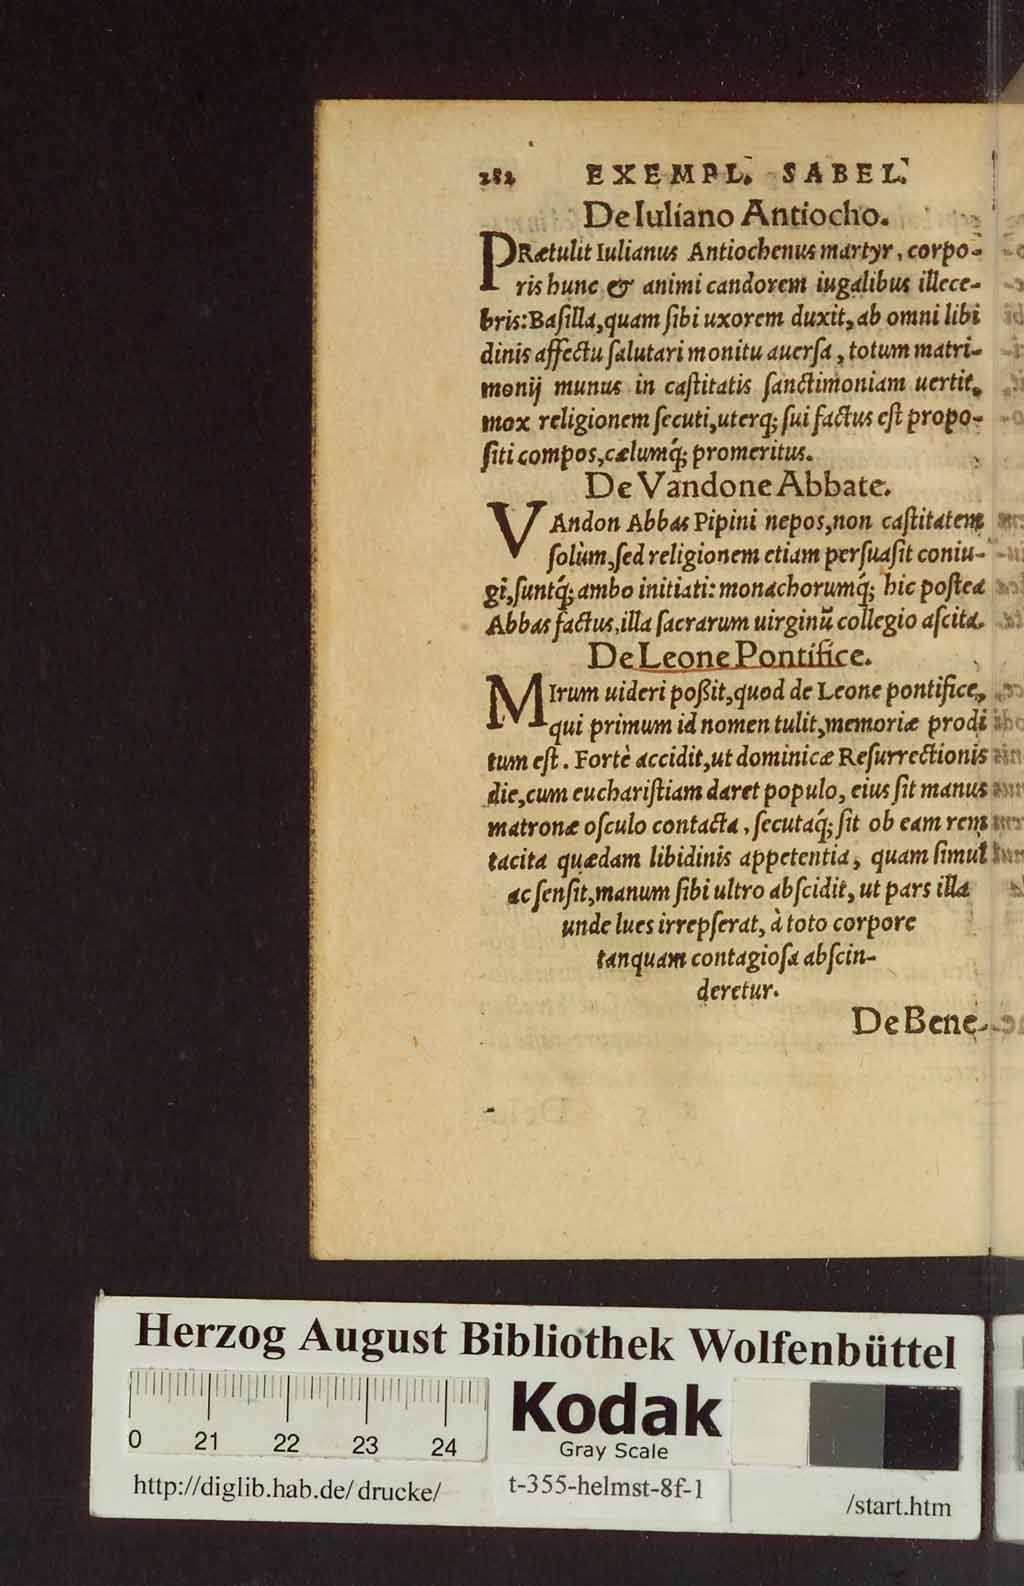 282 EXEMPL. SABEL.
De Iuliano Antiocho.
PRætulit Iulianus Antiochenus martyr, corpo-
ris hunc & animi candorem iugalibus illece-
bris: Baſilla, quam ſibi uxorem duxit, ab omni libi
dinis affectu ſalutari monitu auerſa, totum matri-
monij munus in caſtitatis ſanctimoniam uertit,
mox religionem ſecuti, uterq; ſui factus eſt propo-
ſiti compos, cælumq́; promeritus.
De Vandone Abbate.
VAndon Abbas Pipini nepos, non caſtitatem
ſolùm, ſed religionem etiam perſuaſit coniu-
gi, ſuntq́; ambo initiati: monachorumq́; hic poſtea
Abbas factus, illa ſacrarum uirginū collegio aſcita.
De Leone Pontifice.
MIrum uideri poßit, quod de Leone pontifice,
qui primum id nomen tulit, memoriæ prodi
tum eſt. Fortè accidit, ut dominicæ Reſurrectionis
die, cum euchariſtiam daret populo, eius ſit manus
matronæ oſculo contacta, ſecutaq́; ſit ob eam rem
tacita quædam libidinis appetentia, quam ſimul
ac ſenſit, manum ſibi ultro abſcidit, ut pars illa
unde lues irrepſerat, à toto corpore
tanquam contagioſa abſcin-
deretur.
De Bene-
Herzog August Bibliothek Wolfenbüttel
0 21 22 23 24
Kodak
Gray Scale
http://diglib.hab.de/drucke/ t-355-helmst-8f-1 /start.htm